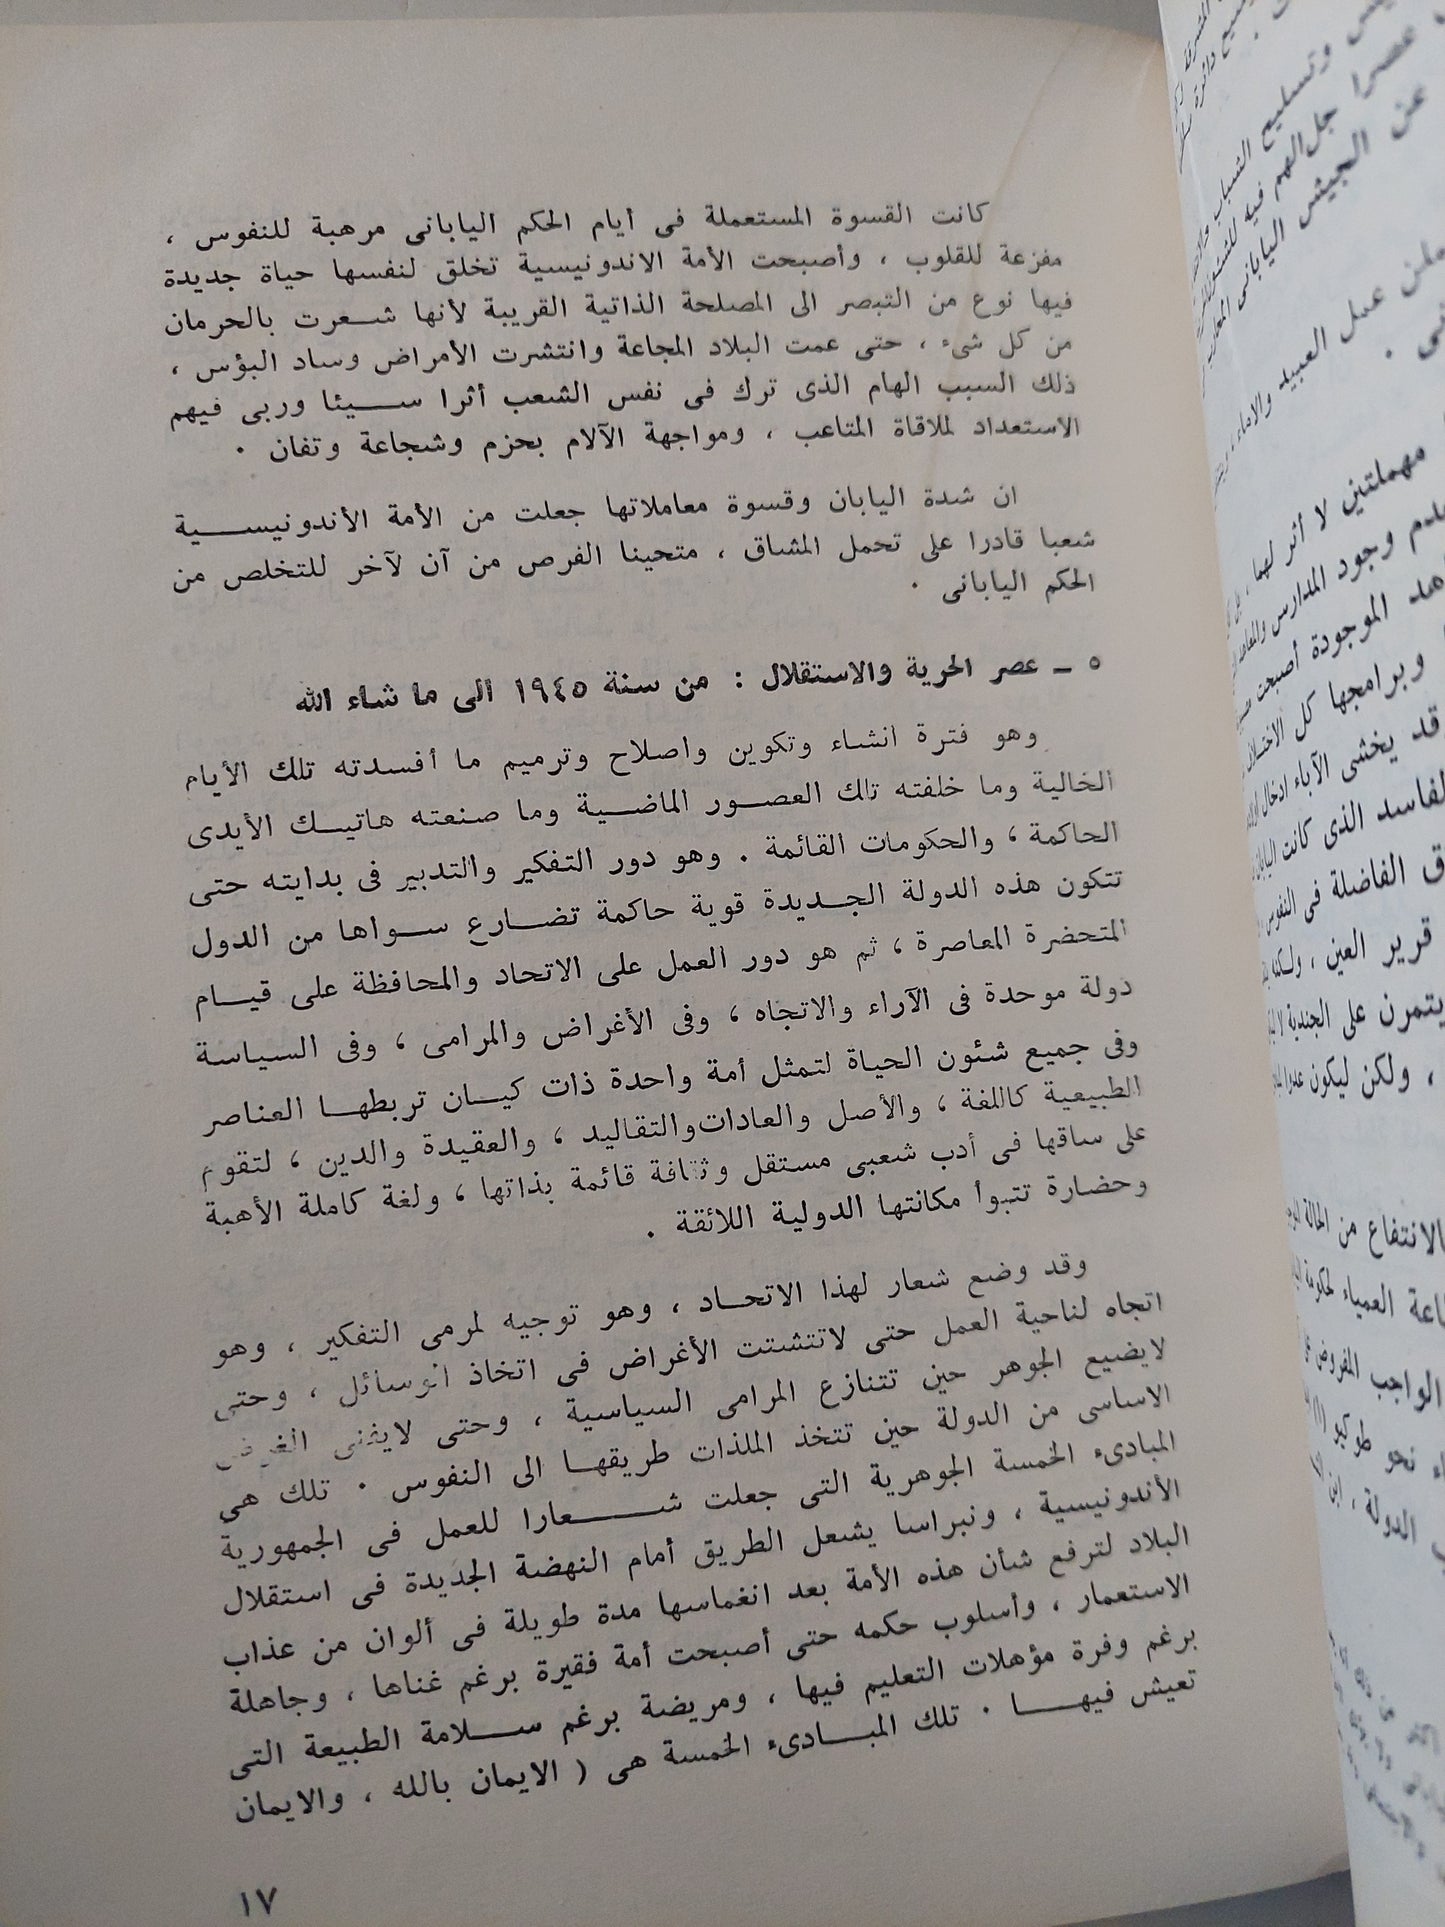 كانت القسوة المستعملة فى أيام الحكم اليابانى مرهبة للنفوس ،
مفزعة للقلوب ، وأصبحت الأمة الاندونيسية تخلق لنفسها حياة جديدة
فيها نوع من التبصر الى المصلحة الذاتية القريبة لأنها شعرت بالحرمان
من كل شىء ، حتى عمت البلاد المجاعة وانتشرت الأمراض وساد البؤس ،
ذلك السبب الهام الذى ترك فى نفس الشعب أثرا سيئا وربى فيهم
الاستعداد لملاقاة المتاعب ، ومواجهة الآلام بحزم وشجاعة وتفان .
ان شدة اليابان وقسوة معاملاتها جعلت من الأمة الأندونيسية
شعبا قادرا على تحمل المشاق ، متحينا الفرص من آن لآخر للتخلص من
الحكم اليابانى .
٥ ـ عصر الحرية والاستقلال : من سنة ١٩٤٥ الى ما شاء الله
وهو فترة انشاء وتكوين واصلاح وترميم ما أفسدته تلك الأيام
الخالية وما خلفته تلك العصور الماضية وما صنعته هاتيك الأيدى
الحاكمة ، والحكومات القائمة . وهو دور التفكير والتدبير فى بدايته حتى
تتكون هذه الدولة الجديدة قوية حاكمة تضارع سواها من الدول
المتحضرة المعاصرة ، ثم هو دور العمل على الاتحاد والمحافظة على قيام
دولة موحدة فى الآراء والاتجاه ، وفى الأغراض والمرامى ، وفى السياسة
وفى جميع شئون الحياة لتمثل أمة واحدة ذات كيان تربطها العناصر
الطبيعية كاللغة ، والأصل والعادات والتقاليد ، والعقيدة والدين ، لتقوم
على ساقها فى أدب شعبى مستقل وثقافة قائمة بذاتها ، ولغة كاملة الأهبة
وحضارة تتبوأ مكانتها الدولية اللائقة .
وقد وضع شعار لهذا الاتحاد ، وهو توجيه لمرمى التفكير ، وهو
اتجاه لناحية العمل حتى لاتتشتت الأغراض فى اتخاذ الوسائل ، وحتى
لايضيع الجوهر حين تتنازع المرامى السياسية ، وحتى لايفنى الغرض
الاساسى من الدولة حين تتخذ الملذات طريقها الى النفوس . تلك هى
المبادىء الخمسة الجوهرية التى جعلت شعارا للعمل فى الجمهورية
الأندونيسية ، ونبراسا يشعل الطريق أمام النهضة الجديدة فى استقلال
البلاد لترفع شأن هذه الأمة بعد انغماسها مدة طويلة فى ألوان من عذاب
الاستعمار ، وأسلوب حكمه حتى أصبحت أمة فقيرة برغم غناها ، وجاهلة
برغم وفرة مؤهلات التعليم فيها ، ومريضة برغم سلامة الطبيعة التى
تعيش فيها . تلك المبادىء الخمسة هى ( الايمان بالله ، والايمان
١٧
وتسليح الشباب
عصرا جل الهم فيه
عن الجيش اليابانى
عمل العبيد والاماء
مهملتين لا أثر لهما ،
وجود المدارس
الموجودة أصبحت
وبرامجها كل
يخشى الآباء ادخال
الذى كانت اليابان
الفاضلة فى النفوس
قرير العين ،
يتمرن على الجندية
، ولكن ليكون
من الحالة
العمياء لحكومة
الواجب المفروض
نحو طوكيو
الدولة ،